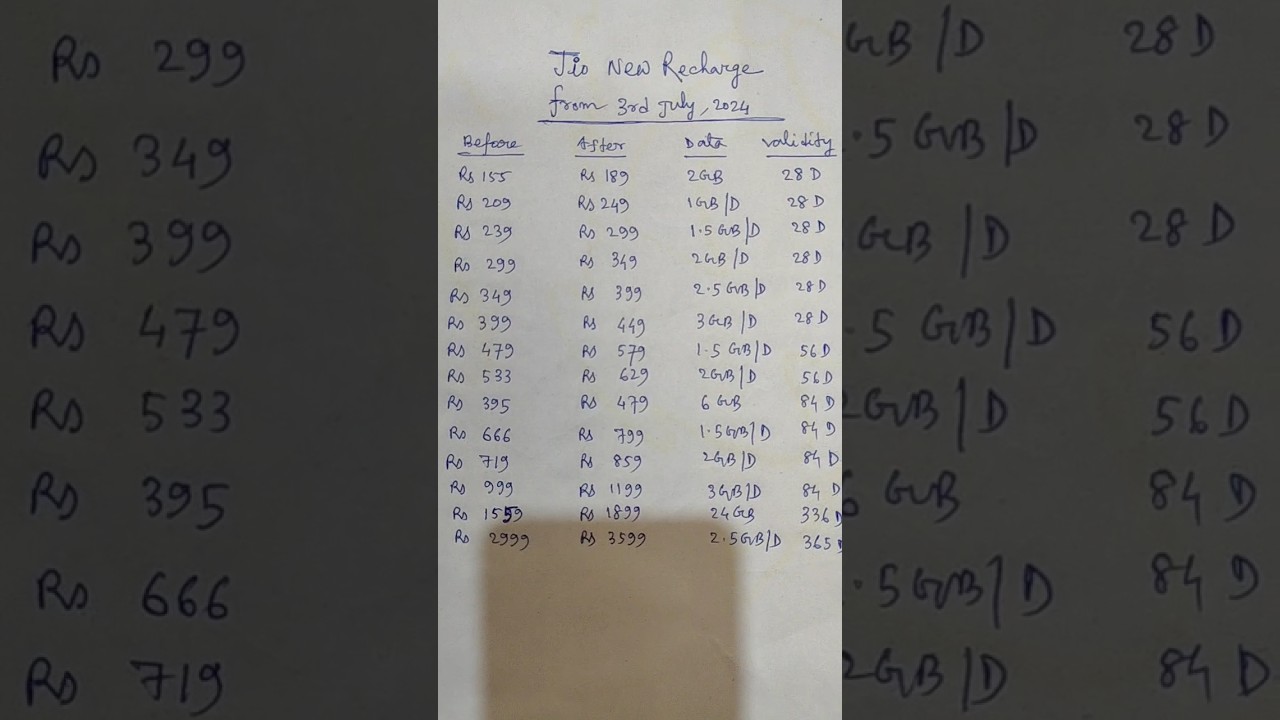 Jio New Recharge
from 3rd July, 2024
Before After Data Validity
Rs 155 Rs 189 2GB 28 D
Rs 209 Rs 249 1GB/D 28 D
Rs 239 Rs 299 1.5 GB/D 28 D
Rs 299 Rs 349 2GB/D 28 D
Rs 349 Rs 399 2.5 GB/D 28 D
Rs 399 Rs 449 3GB/D 28 D
Rs 479 Rs 579 1.5 GB/D 56 D
Rs 533 Rs 629 2GB/D 56 D
Rs 395 Rs 479 6 GB 84 D
Rs 666 Rs 799 1.5GB/D 84 D
Rs 719 Rs 859 2GB/D 84 D
Rs 999 Rs 1199 3GB/D 84 D
Rs 1559 Rs 1899 24GB 336 D
Rs 2999 Rs 3599 2.5GB/D 365 D
Rs 299
Rs 349
Rs 399
Rs 479
Rs 533
Rs 395
Rs 666
Rs 719
GB/D 28 D
.5 GB/D 28 D
GB/D 28 D
.5 GB/D 56 D
2GB/D 56 D
6 GB 84 D
.5GB/D 84 D
2GB/D 84 D